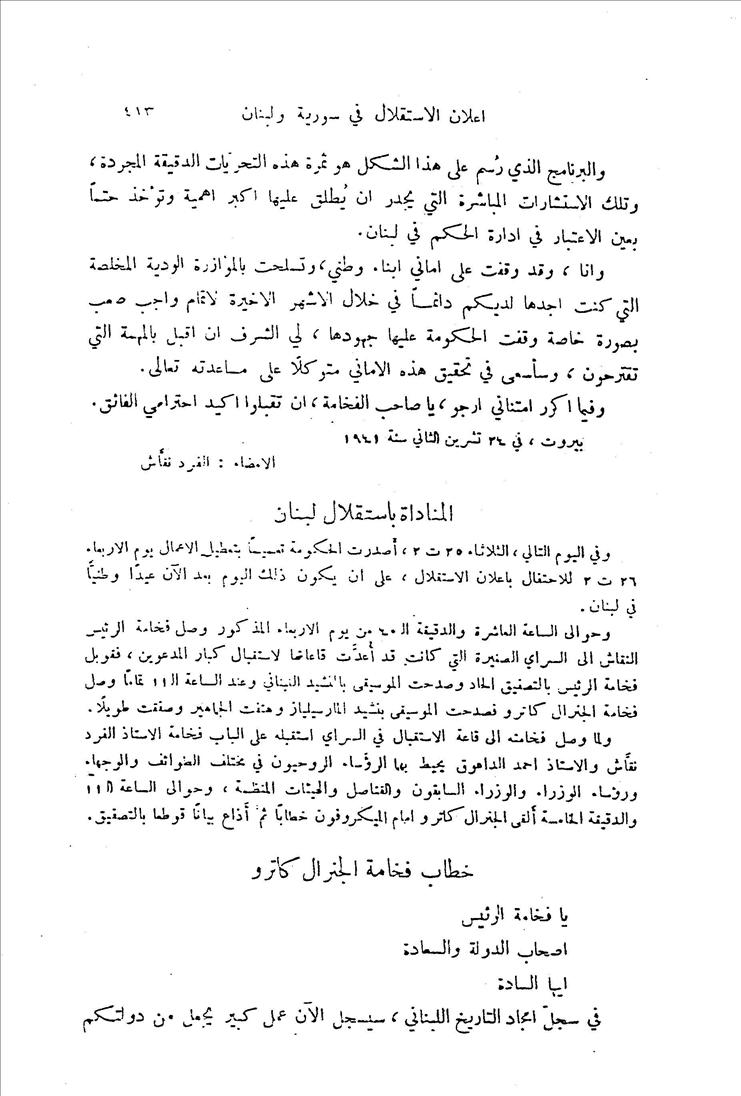 اعلان الاستقلال في سورية ولبنان ٤١٣
والبرنامج الذي رُسم على هذا الشكل هو ثمرة هذه التحريّات الدقيقة المجردة ،
وتلك الاستشارات المباشرة التي يجدر ان يُطلق عليها اكبر اهمية وتؤخذ حتماً
بعين الاعتبار في ادارة الحكم في لبنان.
وانا ، وقد وقفت على اماني ابناء وطني، وتسلحت بالموازرة الودية المخلصة
التي كنت اجدها لديكم دائماً في خلال الاشهر الاخيرة لاتمام واجب صعب
بصورة خاصة وقفت الحكومة عليها جهودها ، لي الشرف ان اقبل بالمهمة التي
تقترحون ، وسأسعى في تحقيق هذه الاماني متوكلًا على مساعدته تعالى.
وفيما اكرر امتناني ارجو ، يا صاحب الفخامة ، ان تقبلوا اكيد احترامي الفائق.
بيروت ، في ٢٤ تشرين الثاني سنة ١٩٤١
الامضاء : الفرد نقّاش
المناداة باستقلال لبنان
وفي اليوم التالي ، الثلاثاء ٢٥ ت ٢ ، أصدرت الحكومة تعميماً بتعطيل الاعمال يوم الاربعاء
٢٦ ت ٢ للاحتفال باعلان الاستقلال ، على ان يكون ذلك اليوم بعد الآن عيدًا وطنيًّا
في لبنان.
وحوالى الساعة العاشرة والدقيقة الـ ٤٠ من يوم الاربعاء المذكور وصل فخامة الرئيس
النقاش الى السراي الصغيرة التي كانت قد أُعدَّت قاعاتها لاستقبال كبار المدعوين ، فقوبل
فخامة الرئيس بالتصفيق الحاد وصدحت الموسيقى بالنشيد اللبناني وعند الساعة الـ ١١ تمامًا وصل
فخامة الجنرال كاترو فصدحت الموسيقى بنشيد المارسيلياز وهتفت الجماهير وصفقت طويلًا.
ولما وصل فخامته الى قاعة الاستقبال في السراي استقبله على الباب فخامة الاستاذ الفرد
نقّاش والاستاذ احمد الداعوق يحيط بهما الرؤساء الروحيون في مختلف الطوائف والوجهاء
ورؤساء الوزراء والوزراء السابقون والقناصل والهيئات المنظمة ، وحوالى الساعة الـ ١١
والدقيقة الخامسة ألقى الجنرال كاترو امام الميكروفون خطابًا ثم أذاع بيانًا قوطعا بالتصفيق.
خطاب فخامة الجنرال كاترو
يا فخامة الرئيس
اصحاب الدولة والسعادة
ايها السادة
في سجلّ امجاد التاريخ اللبناني ، سيسجل الآن عمل كبير يجعل من دولتكم